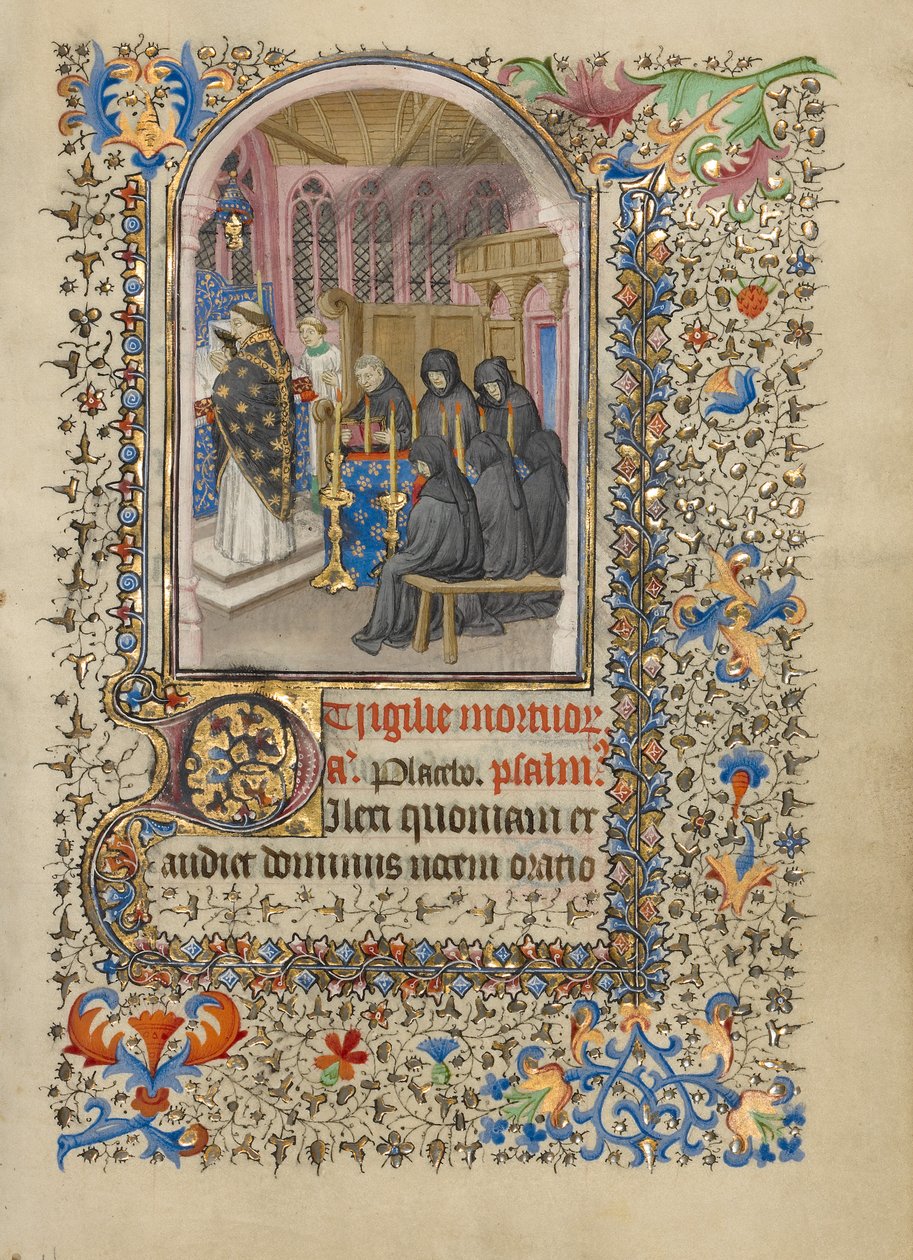 Vigilie mortuoꝝ
a. Placebo. psalmꝰ.
DIlexi quoniam ex
audiet dominus uocem oratio